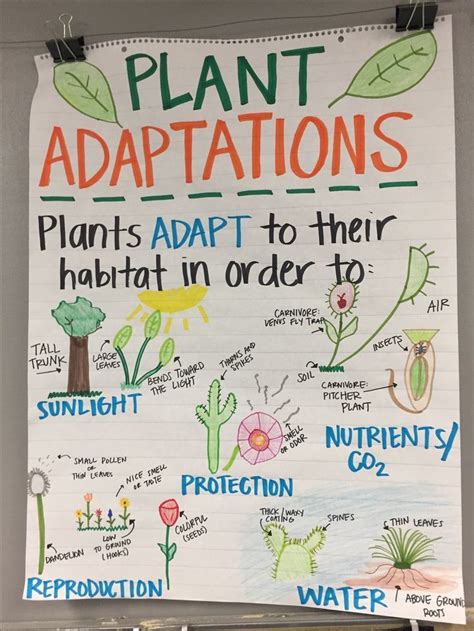 PLANT
ADAPTATIONS
Plants ADAPT to their
habitat in order to:
TALL
TRUNK
LARGE
LEAVES
BENDS TOWARD
THE LIGHT
SUNLIGHT
THORNS AND
SPIKES
SMELL
OR ODOR
PROTECTION
CARNIVORE:
VENUS FLY TRAP
SOIL
AIR
INSECTS
CARNIVORE:
PITCHER
PLANT
NUTRIENTS/
CO2
SMALL POLLEN
OR
THIN LEAVES
DANDELION
NICE SMELL
OR TASTE
LOW
TO GROUND
(HOOKS)
COLORFUL
(SEEDS)
REPRODUCTION
THICK/WAXY
COATING
SPINES
THIN LEAVES
WATER
ABOVE GROUND
ROOTS